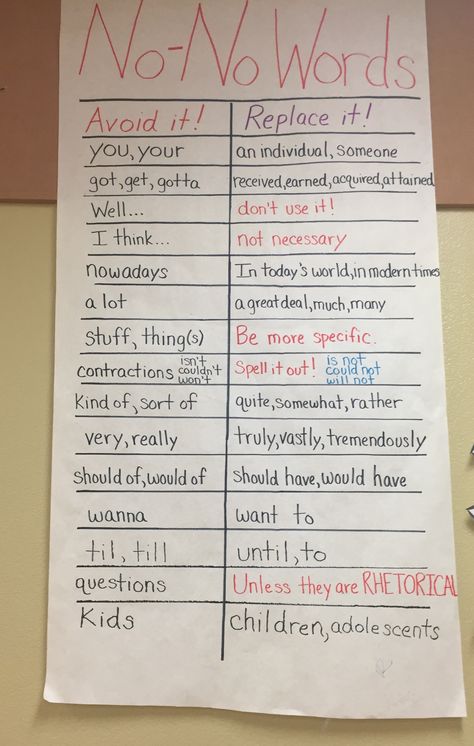 No-No Words
Avoid it! Replace it!
you, your an individual, someone
got, get, gotta received, earned, acquired, attained
Well... don't use it!
I think... not necessary
nowadays In today's world, in modern times
a lot a great deal, much, many
stuff, thing(s) Be more specific.
contractions isn't couldn't won't Spell it out! is not could not will not
Kind of, sort of quite, somewhat, rather
very, really truly, vastly, tremendously
should of, would of should have, would have
wanna want to
til, till until, to
questions Unless they are RHETORICAL
Kids children, adolescents